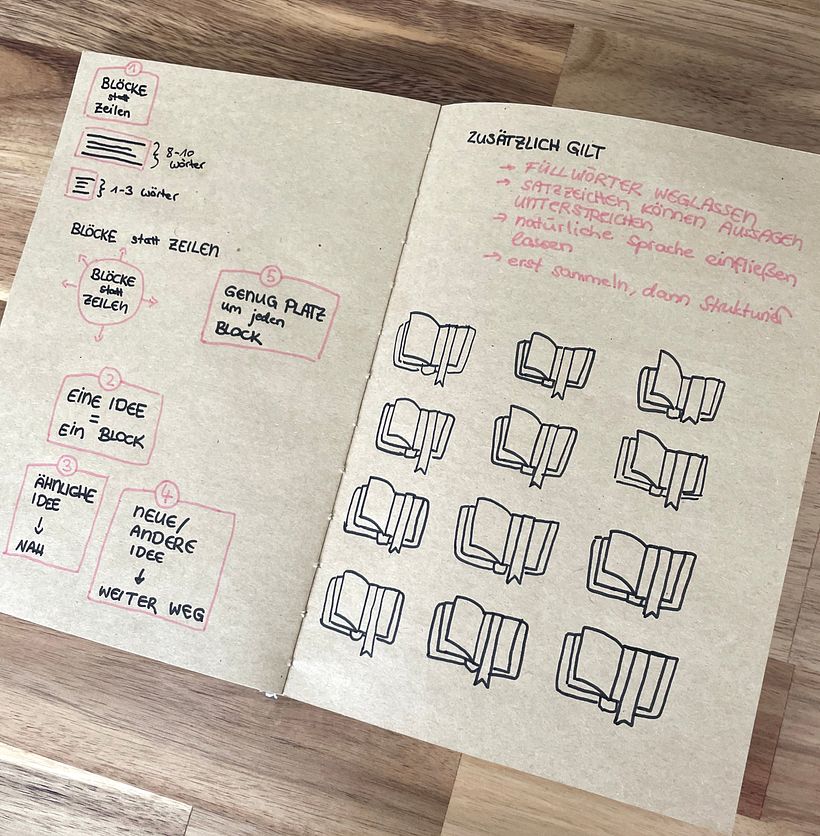 1
BLÖCKE
statt
Zeilen
8-10
wörter
1-3 wörter
BLÖCKE statt ZEILEN
BLÖCKE
statt
ZEILEN
5
GENUG PLATZ
um jeden
BLOCK
2
EINE IDEE
=
Ein BLOCK
3
ÄHNLICHE
IDEE
↓
NAH
4
NEUE/
ANDERE
IDEE
↓
WEITER WEG
ZUSÄTZLICH GILT
→ FÜLLWÖRTER WEGLASSEN
→ SATZZEICHEN KÖNNEN AUSSAGEN
UNTERSTREICHEN
→ natürliche Sprache einfließen
lassen
→ erst sammeln, dann